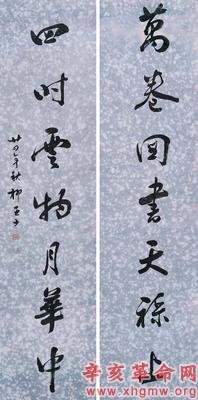 萬卷圖書天祿上
四時雲物月華中
廿四年秋 柳亞子
辛亥革命网
www.xhgmw.com